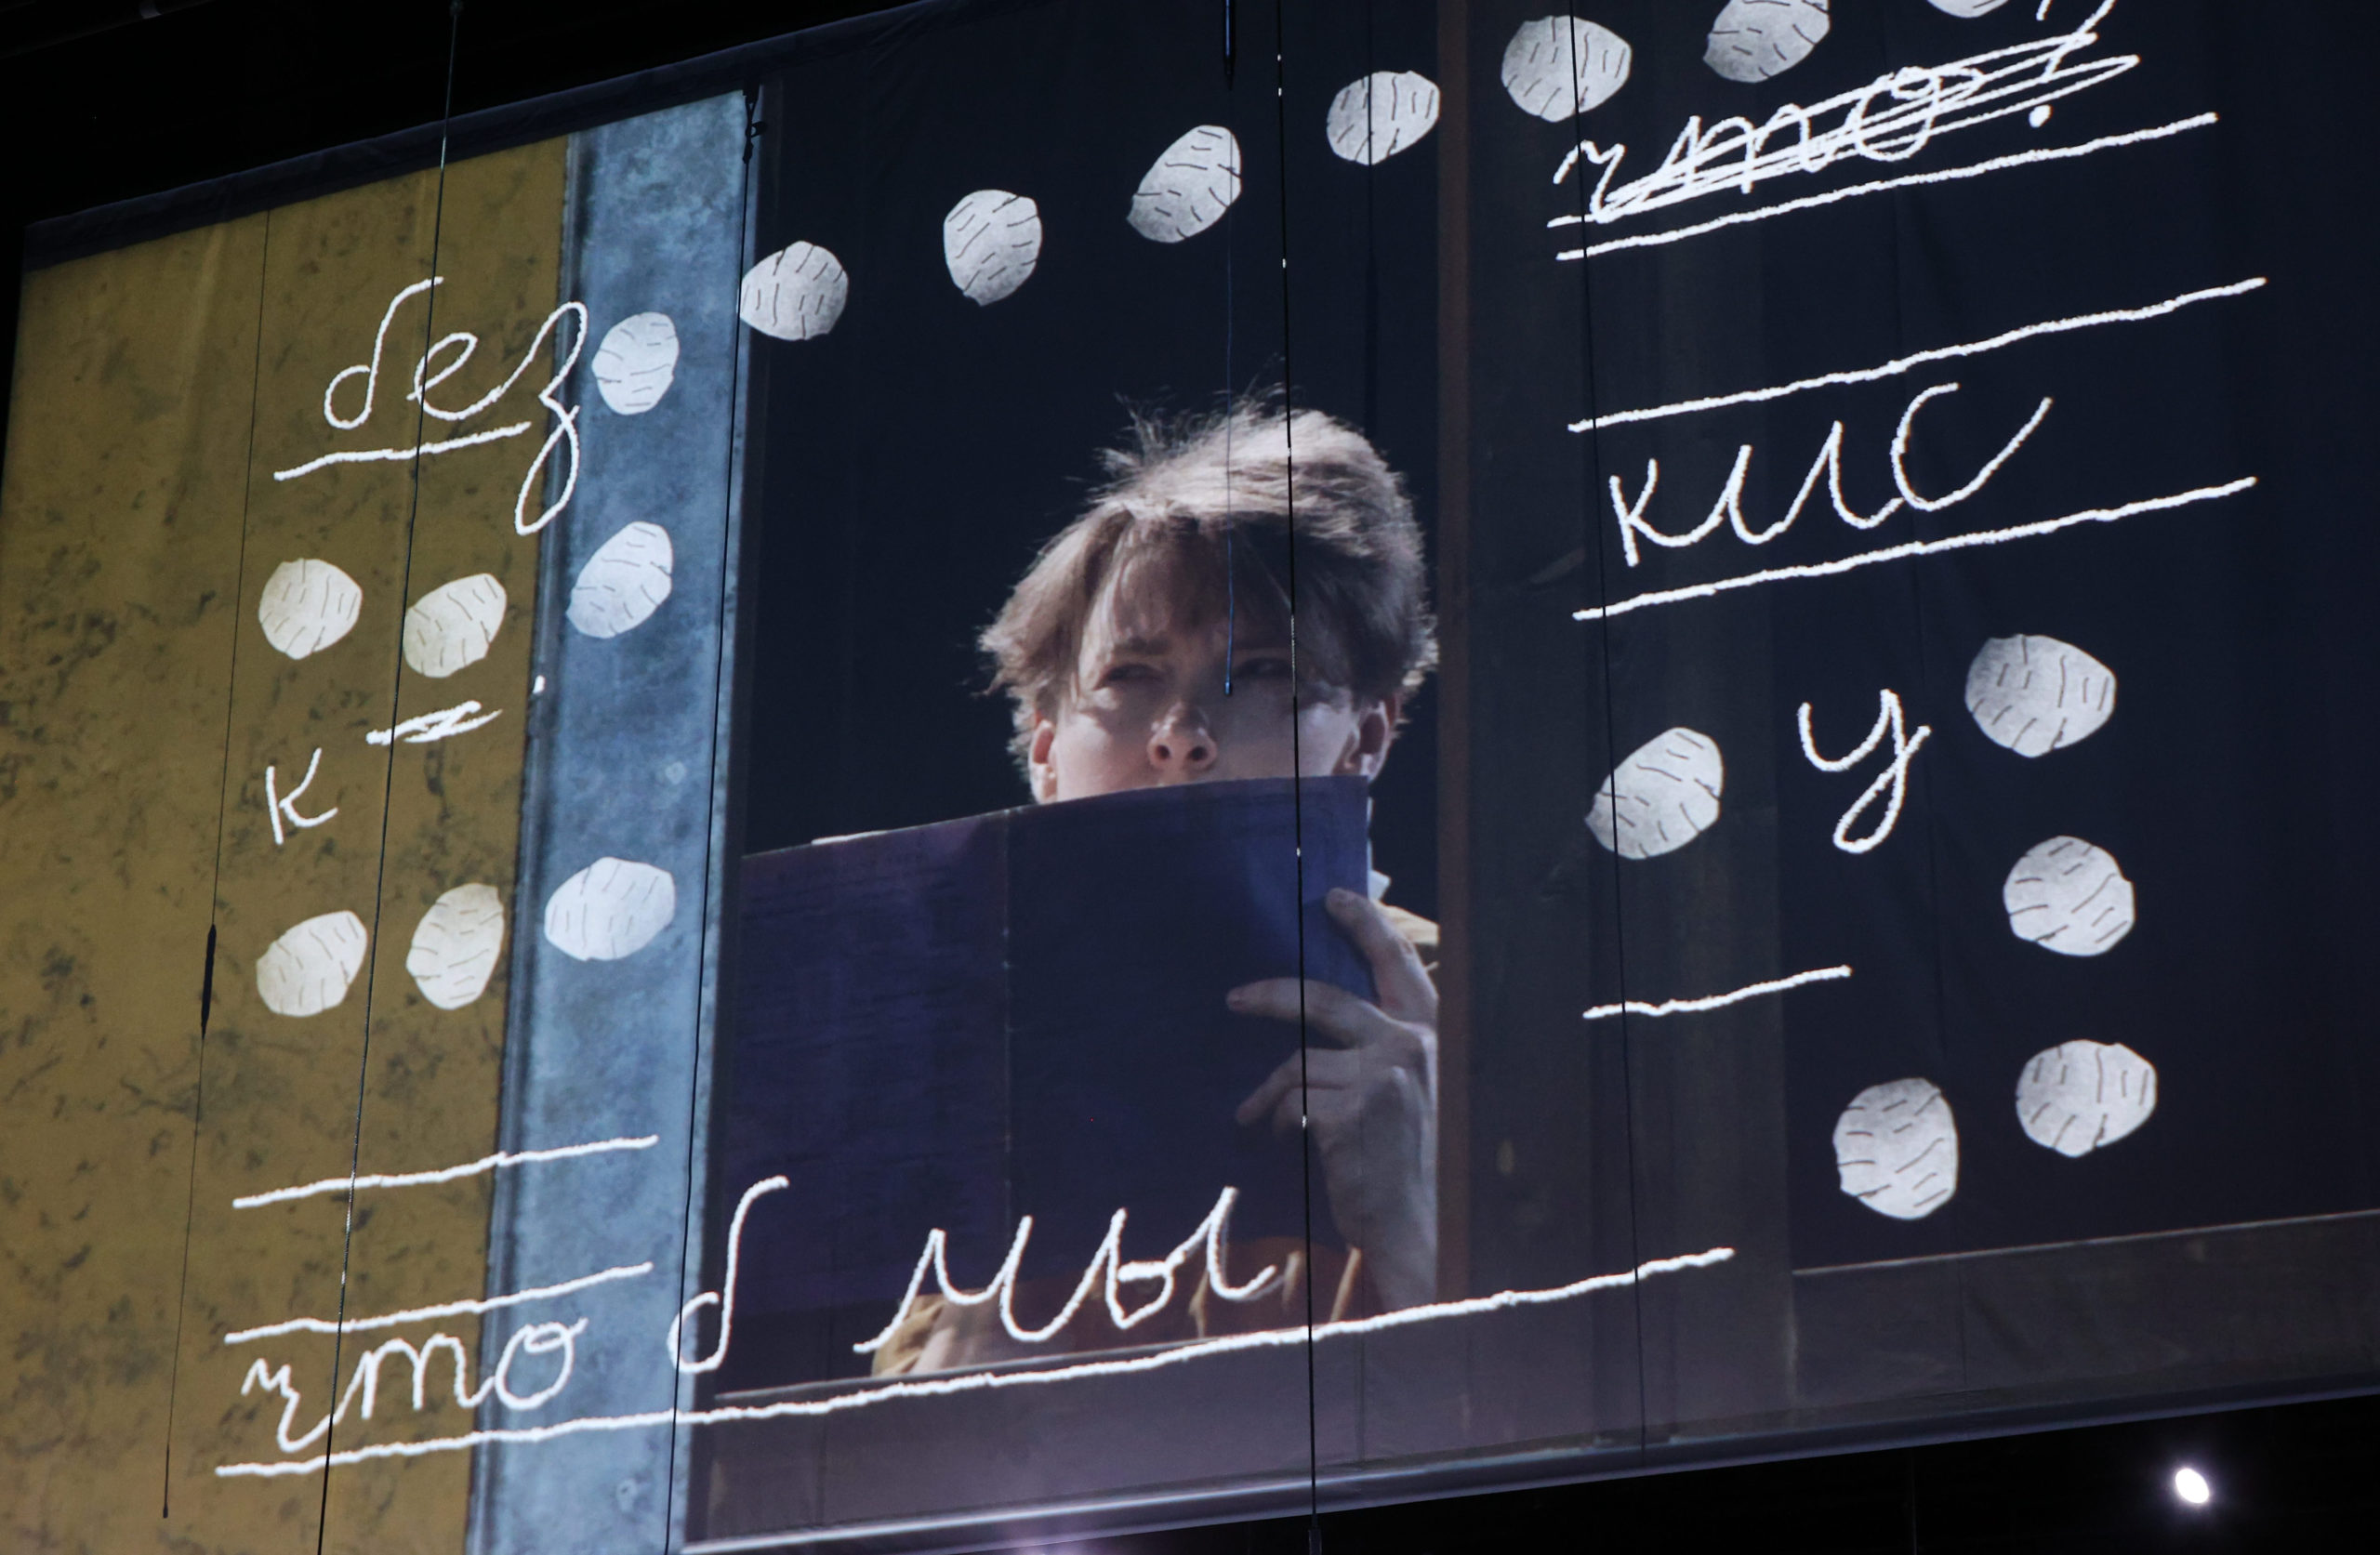 что?
без
кис
к
у
что б мы